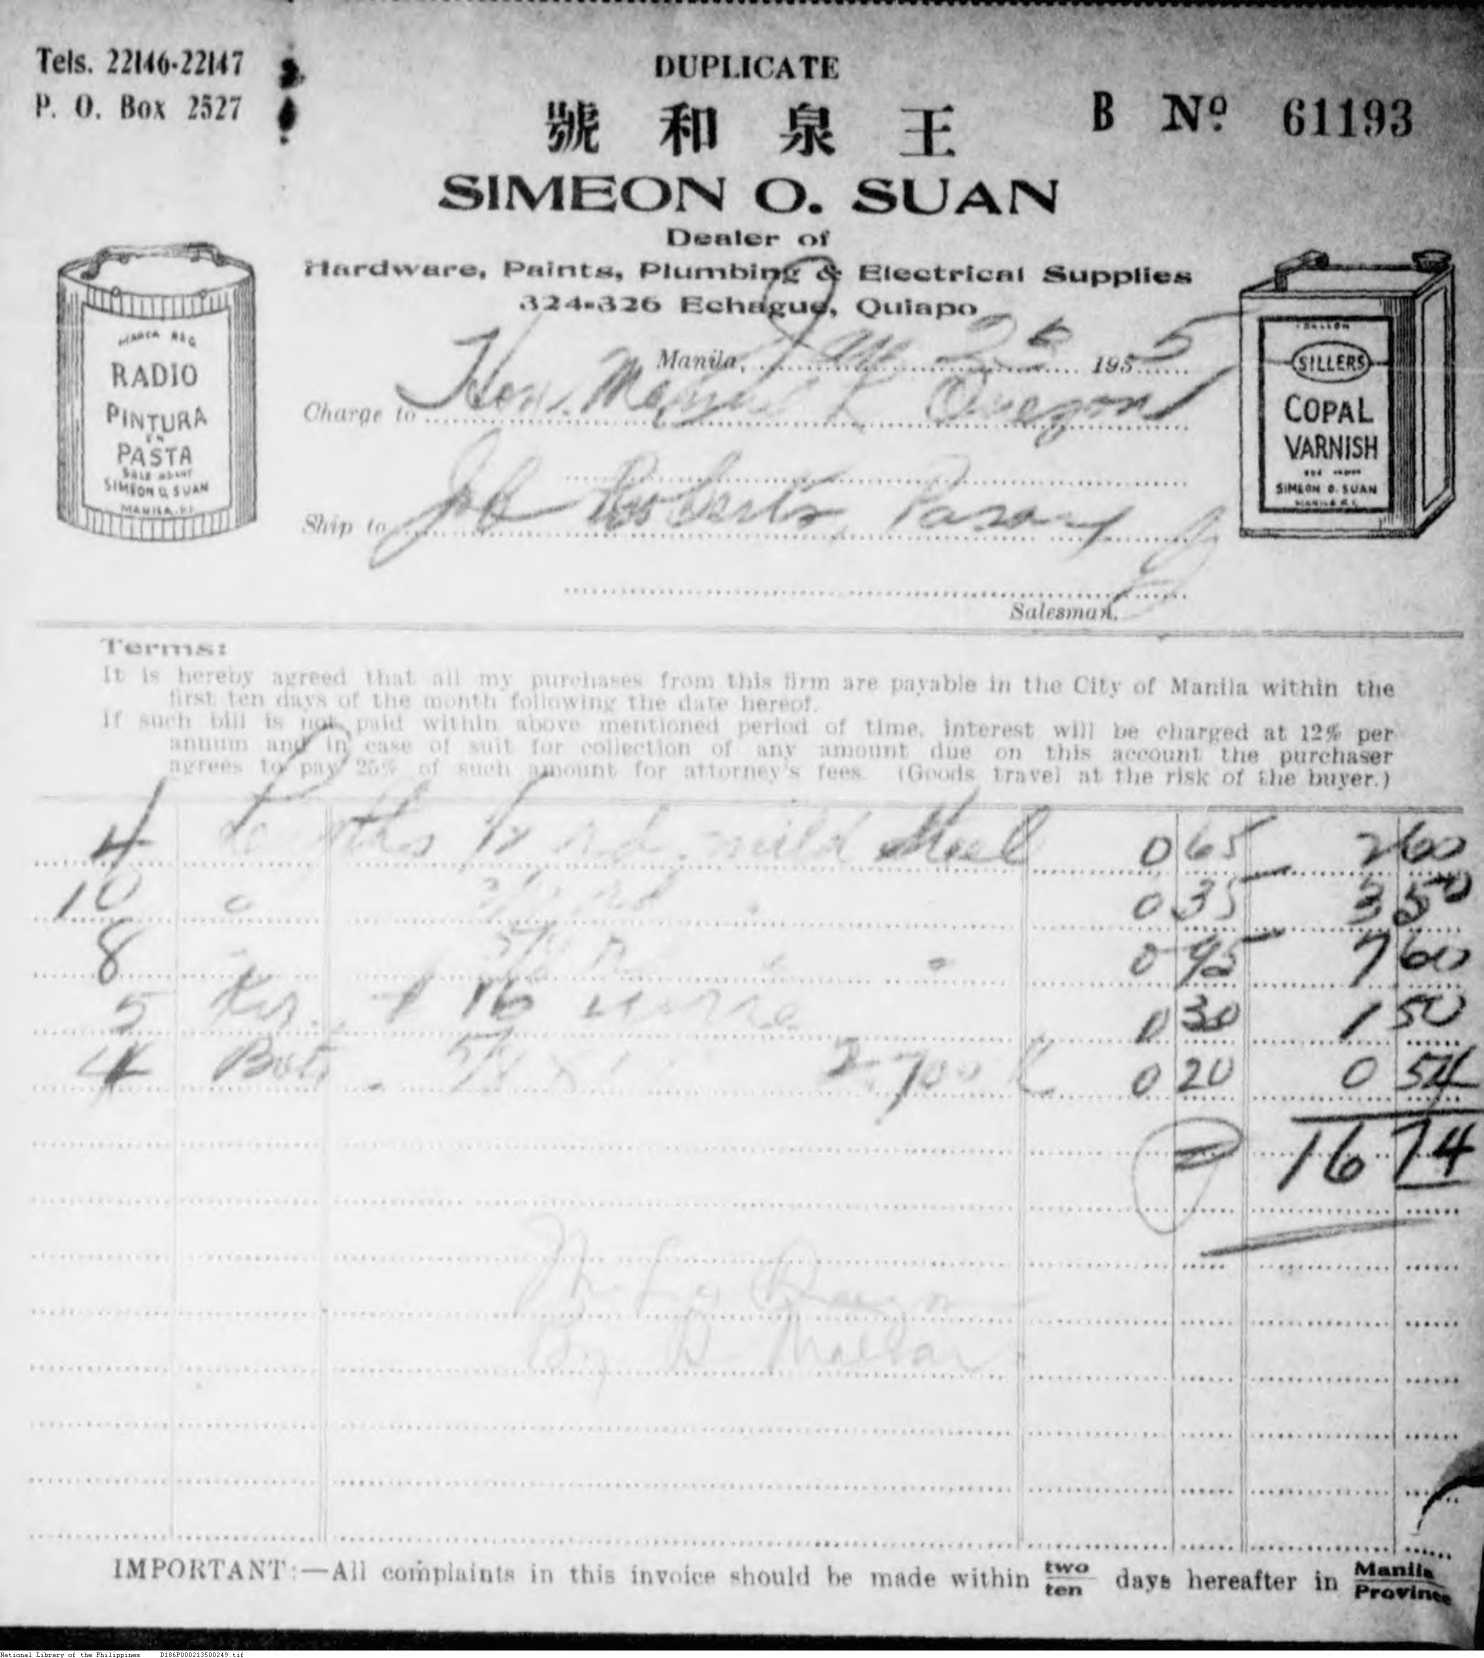 Tels. 22146-22147
P. O. Box 2527
DUPLICATE
號 和 泉 王
B No. 61193
SIMEON O. SUAN
Dealer of
Hardware, Paints, Plumbing & Electrical Supplies
324-326 Echague, Quiapo
Manila, Jan 25 1955
Charge to Hon. Manuel L Quezon
Ship to Job Roberts, Pasay
Salesman.
MARCA REG
RADIO
PINTURA
EN
PASTA
SOLE AGENT
SIMEON O. SUAN
MANILA, P.I.
1 GALLON
SILLERS
COPAL
VARNISH
SIMEON O. SUAN
MANILA P.I.
Terms:
It is hereby agreed that all my purchases from this firm are payable in the City of Manila within the
first ten days of the month following the date hereof.
If such bill is not paid within above mentioned period of time, interest will be charged at 12% per
annum and in case of suit for collection of any amount due on this account the purchaser
agrees to pay 25% of such amount for attorney's fees. (Goods travel at the risk of the buyer.)
4 Lengths 1/2 rd. mild steel 0 65 2 60
10 " 3/8 rd " 0 35 3 50
8 " 5/8 " " 0 95 7 60
5 Kgs. # 16 wire 0 30 1 50
4 Bots. 5/8 x 2.700 K 0 20 0 54
16 74
By
IMPORTANT:—All complaints in this invoice should be made within two/ten days hereafter in Manila/Province
National Library of the Philippines D186P000213500249.tif